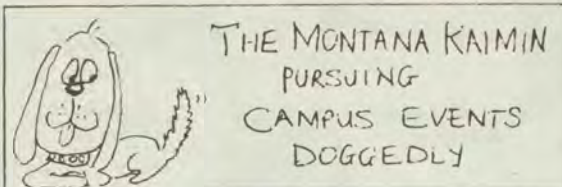 THE MONTANA KAIMIN
PURSUING
CAMPUS EVENTS
DOGGEDLY